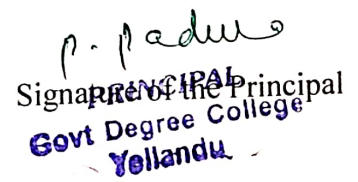 Signature of the Principal
PRINCIPAL
Govt Degree College
Yellandu